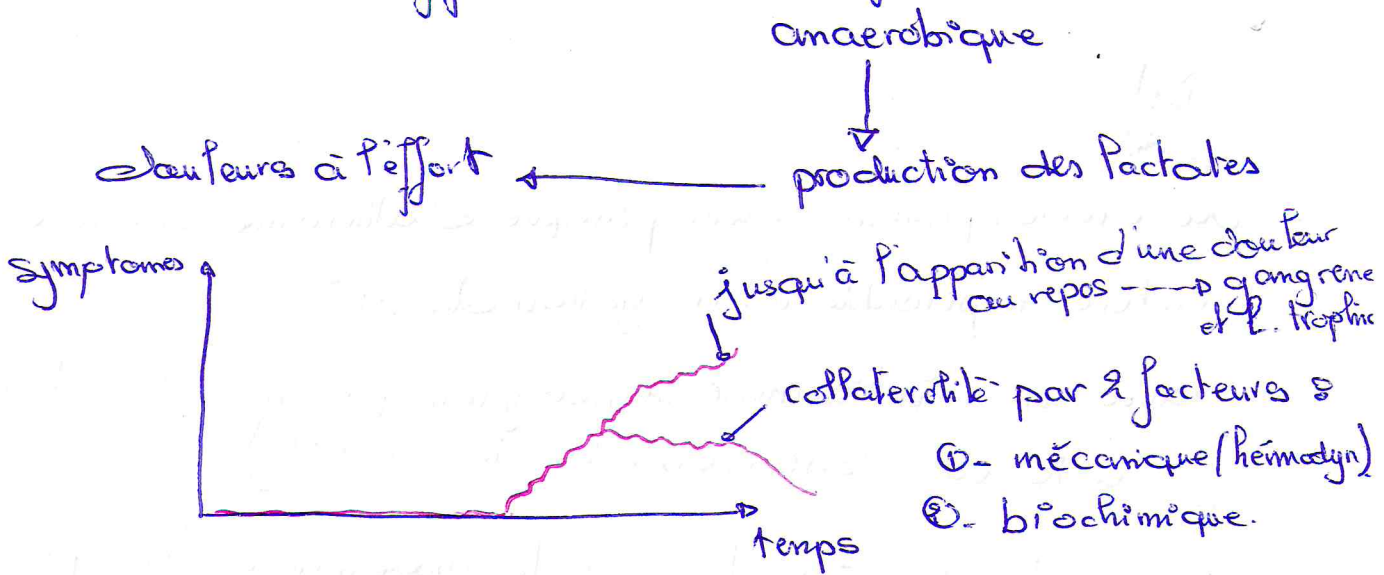 anaerobique
douleurs à l'effort ← production des lactates
symptomes
jusqu'à l'apparition d'une douleur
au repos ---→ gangrene
et t. trophic
collaterolité par 2 facteurs :
①- mécanique (hémodyn)
②- biochimique.
temps